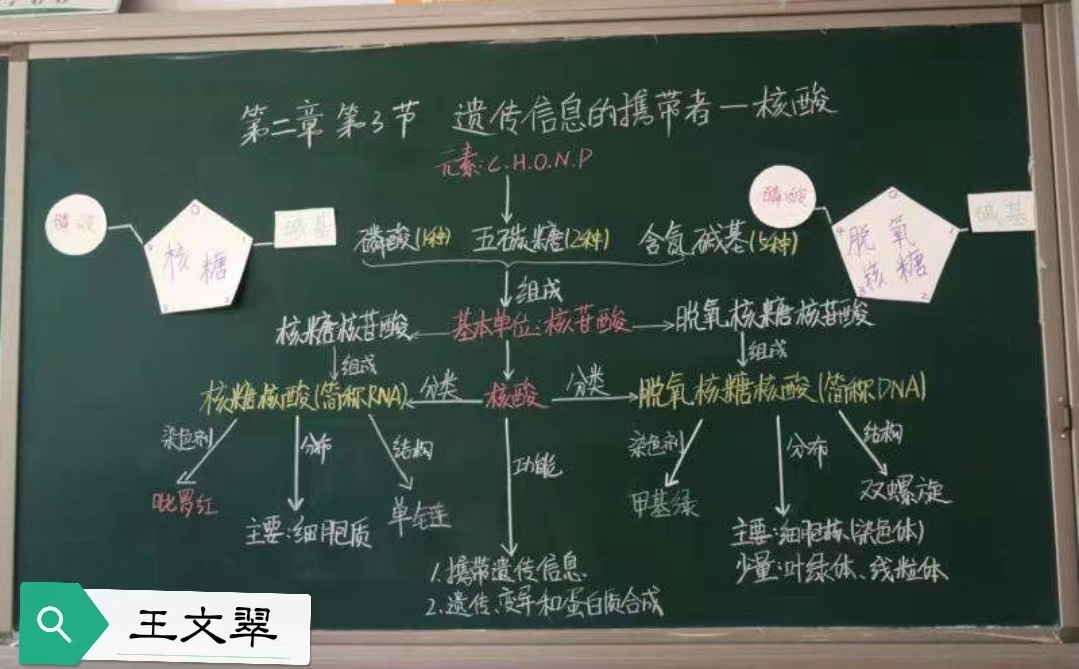 第二章 第3节 遗传信息的携带者—核酸
元素:C.H.O.N.P
磷酸
核糖
碱基
磷酸(1种) 五碳糖(2种) 含氮碱基(5种)
磷酸
脱氧核糖
碱基
组成
核糖核苷酸 基本单位:核苷酸 脱氧核糖核苷酸
组成 组成
核糖核酸(简称RNA) 分类 核酸 分类 脱氧核糖核酸(简称DNA)
染色剂 分布 结构 功能 染色剂 分布 结构
吡罗红 主要:细胞质 单链 甲基绿 双螺旋
主要:细胞核(染色体)
少量:叶绿体、线粒体
1.携带遗传信息
2.遗传、变异和蛋白质合成
王文翠